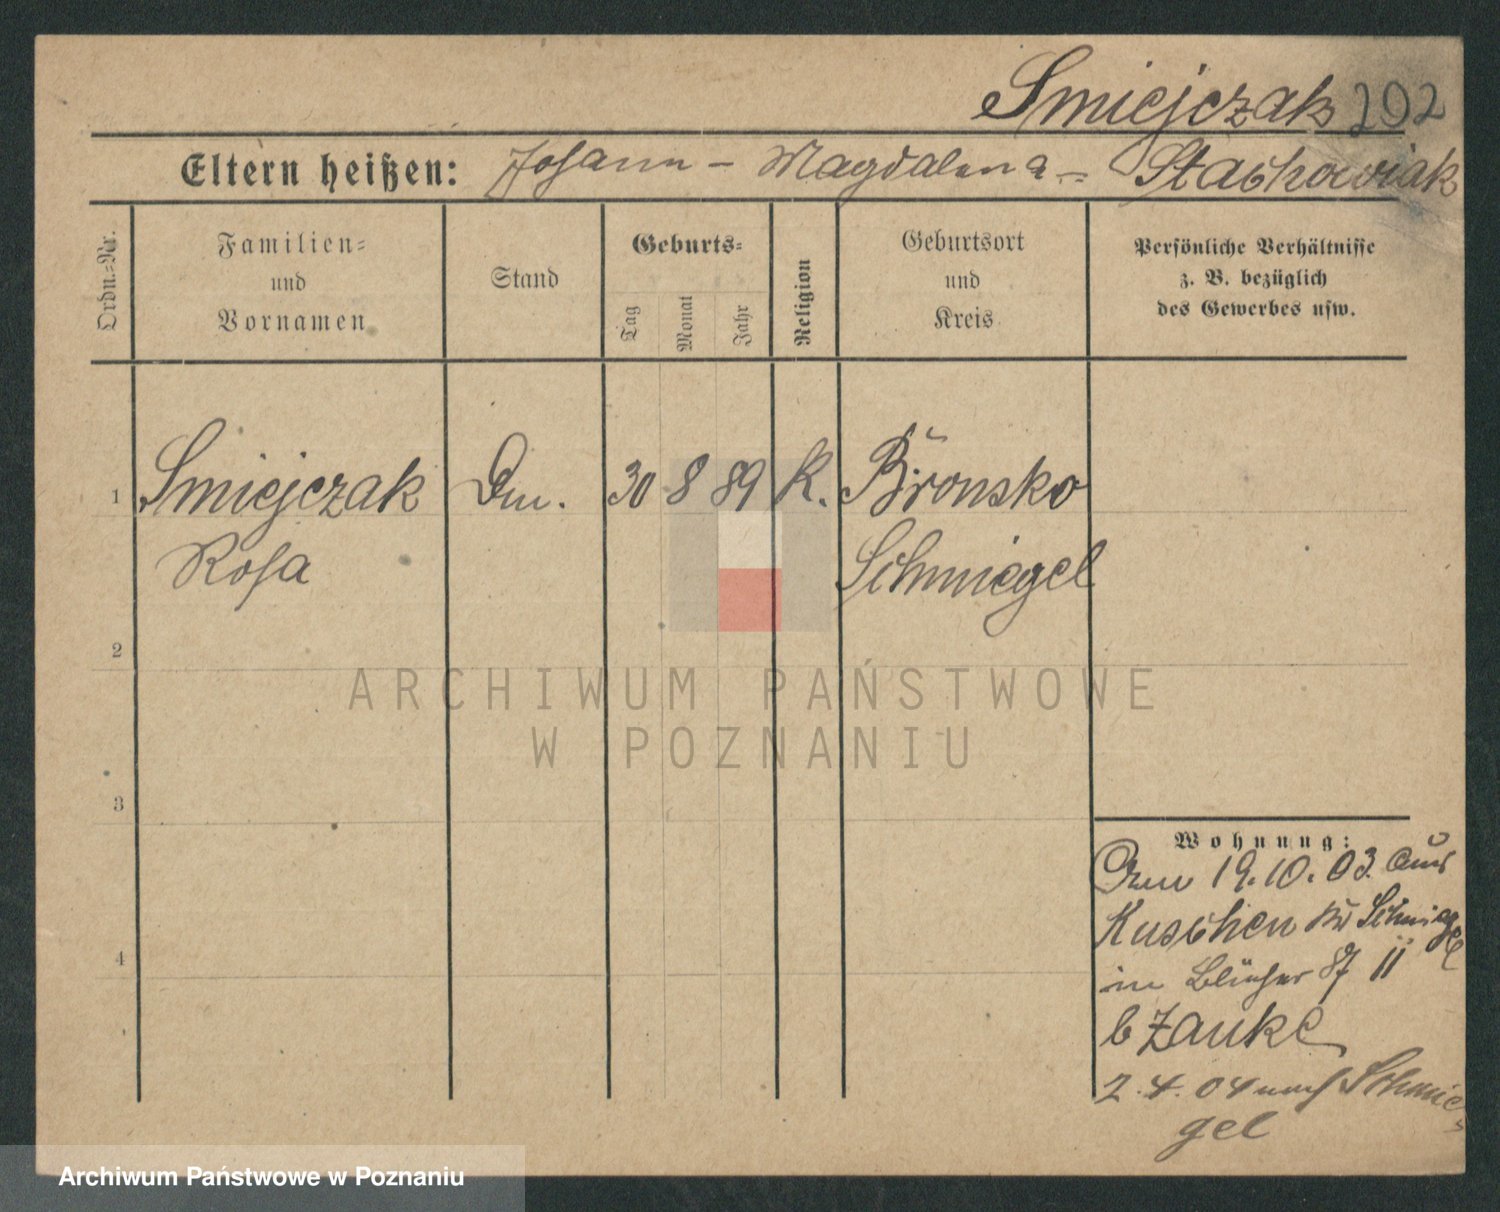 Smiejczak 202
Eltern heißen: Johann – Magdalena – Stachowiak
Ordn.=Nr.
Familien=
und
Vornamen
Stand
Geburts=
Tag
Monat
Jahr
Religion
Geburtsort
und
Kreis
Persönliche Verhältnisse
z. B. bezüglich
des Gewerbes usw.
1 Smiejczak 30 8 89 K. Bronsko
Rosa Schmiegel
2
3
4
Wohnung:
19.10.03. aus
Kuschen Kr Schmiegel
in Blücher 87 II
b Zauke
2.4.04 nach Schmie
gel
ARCHIWUM PAŃSTWOWE
W POZNANIU
Archiwum Państwowe w Poznaniu